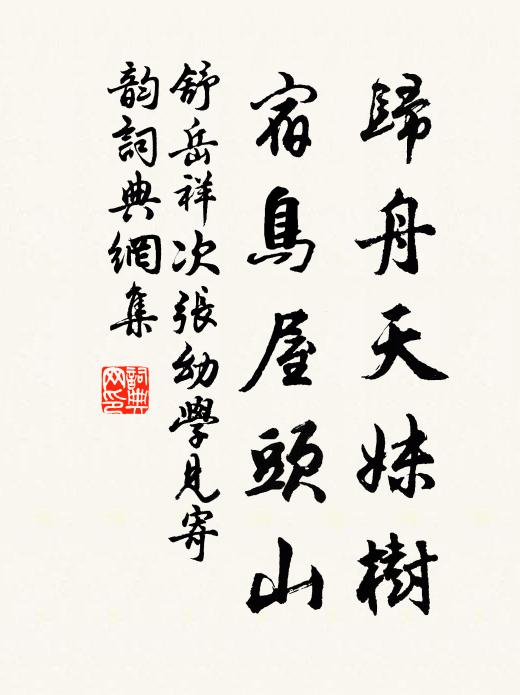 歸舟天妹樹
宿鳥屋頭山
舒岳祥次張幼學見寄
韵詞典網集
詞典
网印